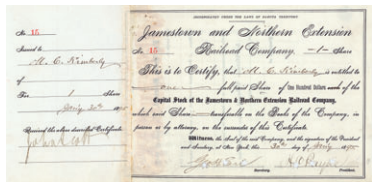 No. 15
Issued to
M. C. Kimberly
of
For 1 Share
Received the above described Certificate
INCORPORATED UNDER THE LAWS OF DAKOTA TERRITORY
Jamestown and Northern Extension
No. 15 Railroad Company, -1- Share
This is to Certify, that M. C. Kimberly is entitled to
one full paid Share of One Hundred Dollars each of the
Capital Stock of the Jamestown & Northern Extension Railroad Company,
which said Share transferable on the Books of the Company, in
person or by attorney, on the surrender of this Certificate.
Witness, the Seal of the said Company, and the signatures of the President
and Secretary, at New York, this 20th day of
Secretary President